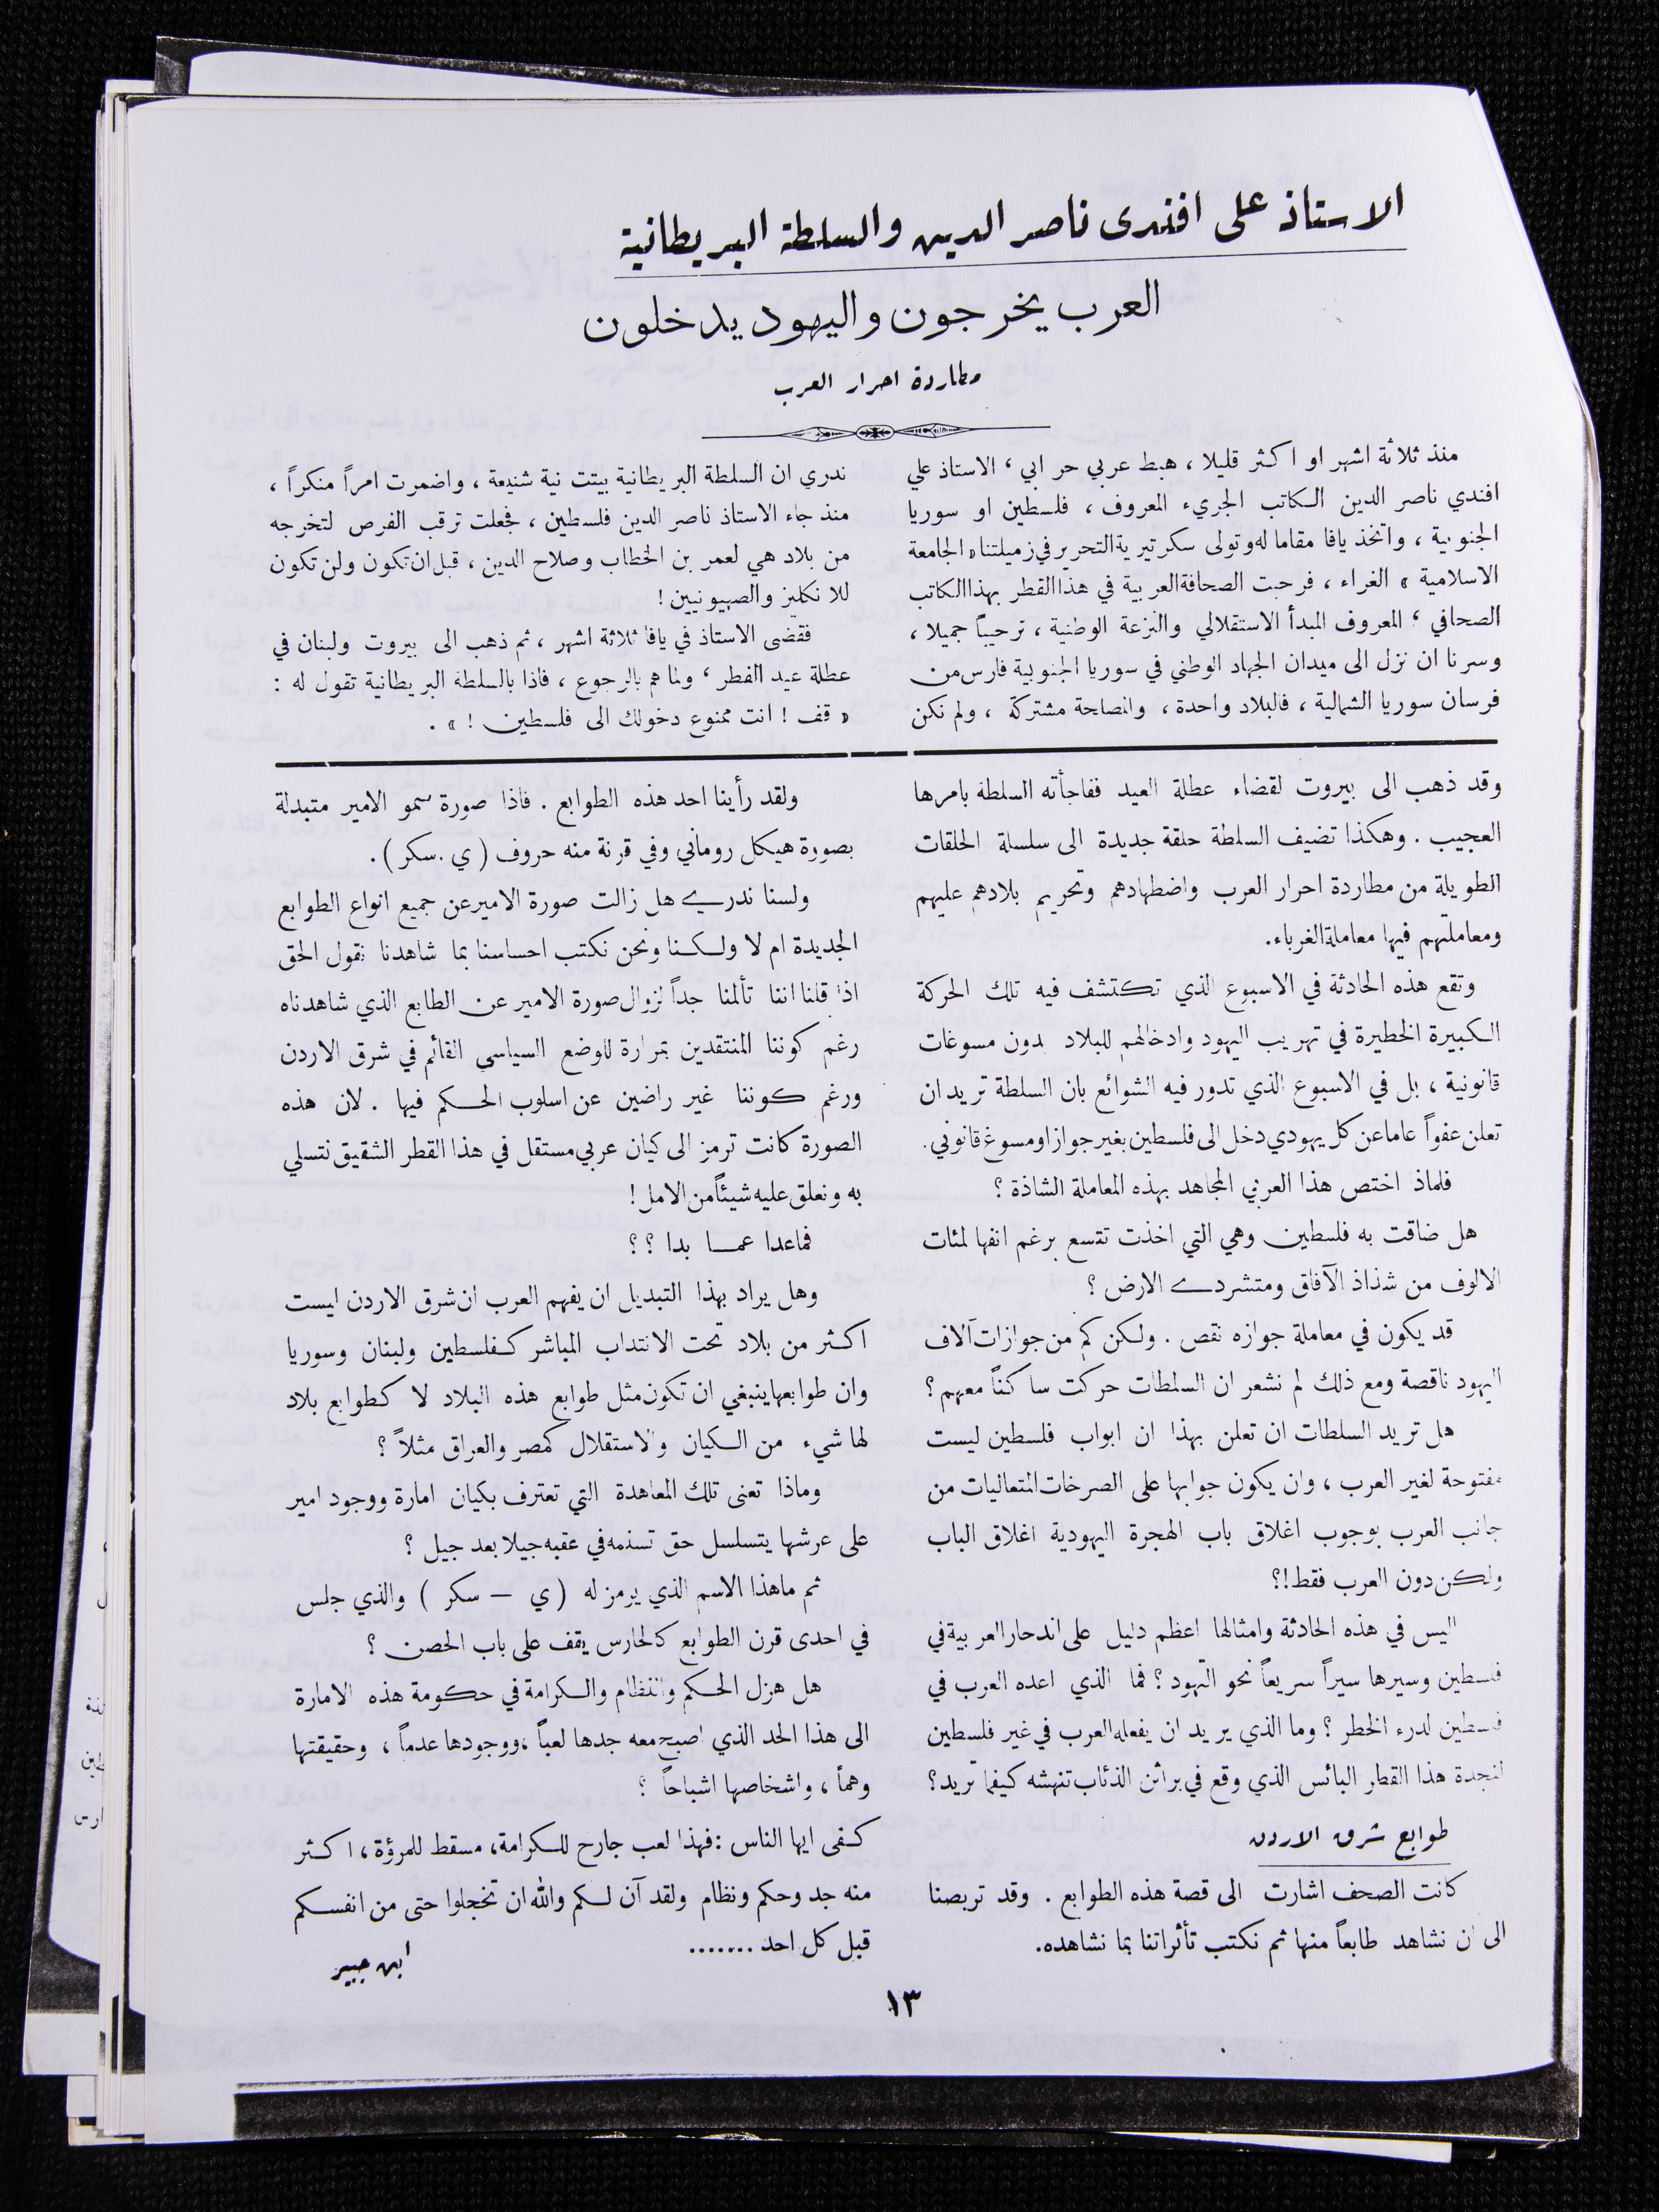 الاستاذ على افندى ناصر الدين والسلطة البريطانية
العرب يخرجون واليهود يدخلون
مطاردة احرار العرب
منذ ثلاثة اشهر او اكثر قليلا ، هبط عربي حر ابي ، الاستاذ علي
افندي ناصر الدين الكاتب الجريء المعروف ، فلسطين او سوريا
الجنوبية ، واتخذ يافا مقاما له وتولى سكرتيرية التحرير في زميلتنا « الجامعة
الاسلامية » الغراء ، فرحبت الصحافة العربية في هذا القطر بهذا الكاتب
الصحافي ، المعروف المبدأ الاستقلالي والنزعة الوطنية ، ترحيباً جميلا ،
وسرنا ان نزل الى ميدان الجهاد الوطني في سوريا الجنوبية فارس من
فرسان سوريا الشمالية ، فالبلاد واحدة ، والمصلحة مشتركة ، ولم نكن
ندري ان السلطة البريطانية بيتت نية شنيعة ، واضمرت امراً منكراً ،
منذ جاء الاستاذ ناصر الدين فلسطين ، فجعلت ترقب الفرص لتخرجه
من بلاد هي لعمر بن الخطاب وصلاح الدين ، قبل ان تكون ولن تكون
للانكليز والصهيونيين !
فقضى الاستاذ في يافا ثلاثة اشهر ، ثم ذهب الى بيروت ولبنان في
عطلة عيد الفطر ، ولما هم بالرجوع ، فاذا بالسلطة البريطانية تقول له :
« قف ! انت ممنوع دخولك الى فلسطين ! » .
وقد ذهب الى بيروت لقضاء عطلة العيد ففاجأته السلطة بامرها
العجيب . وهكذا تضيف السلطة حلقة جديدة الى سلسلة الحلقات
الطويلة من مطاردة احرار العرب واضطهادهم وتحريم بلادهم عليهم
ومعاملتهم فيها معاملة الغرباء.
وتقع هذه الحادثة في الاسبوع الذي تكتشف فيه تلك الحركة
الكبيرة الخطيرة في تهريب اليهود وادخالهم للبلاد بدون مسوغات
قانونية ، بل في الاسبوع الذي تدور فيه الشوائع بان السلطة تريد ان
تعلن عفواً عاما عن كل يهودي دخل الى فلسطين بغير جواز او مسوغ قانوني.
فلماذا اختص هذا العربي المجاهد بهذه المعاملة الشاذة ؟
هل ضاقت به فلسطين وهي التي اخذت تتسع برغم انفها لمئات
الالوف من شذاذ الآفاق ومتشردي الارض ؟
قد يكون في معاملة جوازه نقص . ولكن كم من جوازات آلاف
اليهود ناقصة ومع ذلك لم نشعر ان السلطات حركت ساكناً معهم ؟
هل تريد السلطات ان تعلن بهذا ان ابواب فلسطين ليست
مفتوحة لغير العرب ، وان يكون جوابها على الصرخات المتعاليات من
جانب العرب بوجوب اغلاق باب الهجرة اليهودية اغلاق الباب
ولكن دون العرب فقط !؟
اليس في هذه الحادثة وامثالها اعظم دليل على اندحار العربية في
فلسطين وسيرها سيراً سريعاً نحو التهود ؟ فما الذي اعده العرب في
فلسطين لدرء الخطر ؟ وما الذي يريد ان يفعله العرب في غير فلسطين
لنجدة هذا القطر البائس الذي وقع في براثن الذئاب تنهشه كيفما تريد ؟
طوابع شرق الاردن
كانت الصحف اشارت الى قصة هذه الطوابع . وقد تربصنا
الى ان نشاهد طابعاً منها ثم نكتب تأثراتنا بما نشاهده.
ولقد رأينا احد هذه الطوابع . فاذا صورة سمو الامير متبدلة
بصورة هيكل روماني وفي قرنة منه حروف ( ي . سكر ) .
ولسنا ندري هل زالت صورة الامير عن جميع انواع الطوابع
الجديدة ام لا ولكننا ونحن نكتب احساسنا بما شاهدنا نقول الحق
اذا قلنا اننا تألمنا جداً لزوال صورة الامير عن الطابع الذي شاهدناه
رغم كوننا المنتقدين بمرارة للوضع السياسي القائم في شرق الاردن
ورغم كوننا غير راضين عن اسلوب الحكم فيها . لان هذه
الصورة كانت ترمز الى كيان عربي مستقل في هذا القطر الشقيق نتسلي
به ونعلق عليه شيئاً من الامل !
فماعدا عمـا بدا ؟ ؟
وهل يراد بهذا التبديل ان يفهم العرب ان شرق الاردن ليست
اكثر من بلاد تحت الانتداب المباشر كفلسطين ولبنان وسوريا
وان طوابعها ينبغي ان تكون مثل طوابع هذه البلاد لا كطوابع بلاد
لها شيء من الكيان والاستقلال كمصر والعراق مثلاً ؟
وماذا تعنى تلك المعاهدة التي تعترف بكيان امارة ووجود امير
على عرشها يتسلسل حق تسنمه في عقبه جيلا بعد جيل ؟
ثم ماهذا الاسم الذي يرمز له ( ي – سكر ) والذي جلس
في احدى قرن الطوابع كالحارس يقف على باب الحصن ؟
هل هزل الحكم والنظام والكرامة في حكومة هذه الامارة
الى هذا الحد الذي اصبح معه جدها لعباً ، ووجودها عدماً ، وحقيقتها
وهماً ، واشخاصها اشباحاً ؟
كفى ايها الناس : فهذا لعب جارح للكرامة ، مسقط للمرؤة ، اكثر
منه جد وحكم ونظام ولقد آن لكم والله ان تخجلوا حتى من انفسكم
قبل كل احد .......
ابن جبير
١٣